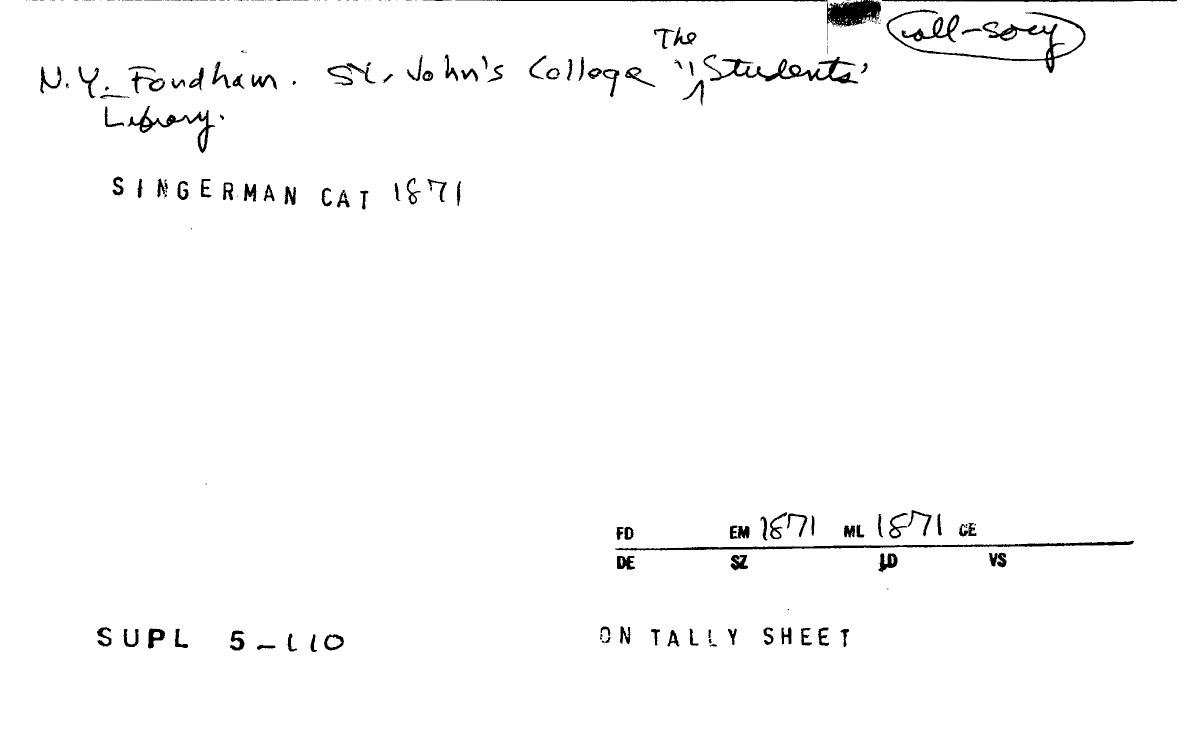 coll-socy
N.Y. Fordham. St. John's College "The Students'
Library.
SINGERMAN CAT 1871
FD EM 1871 ML 1871 CE
DE SZ LD VS
SUPL 5-110
ON TALLY SHEET